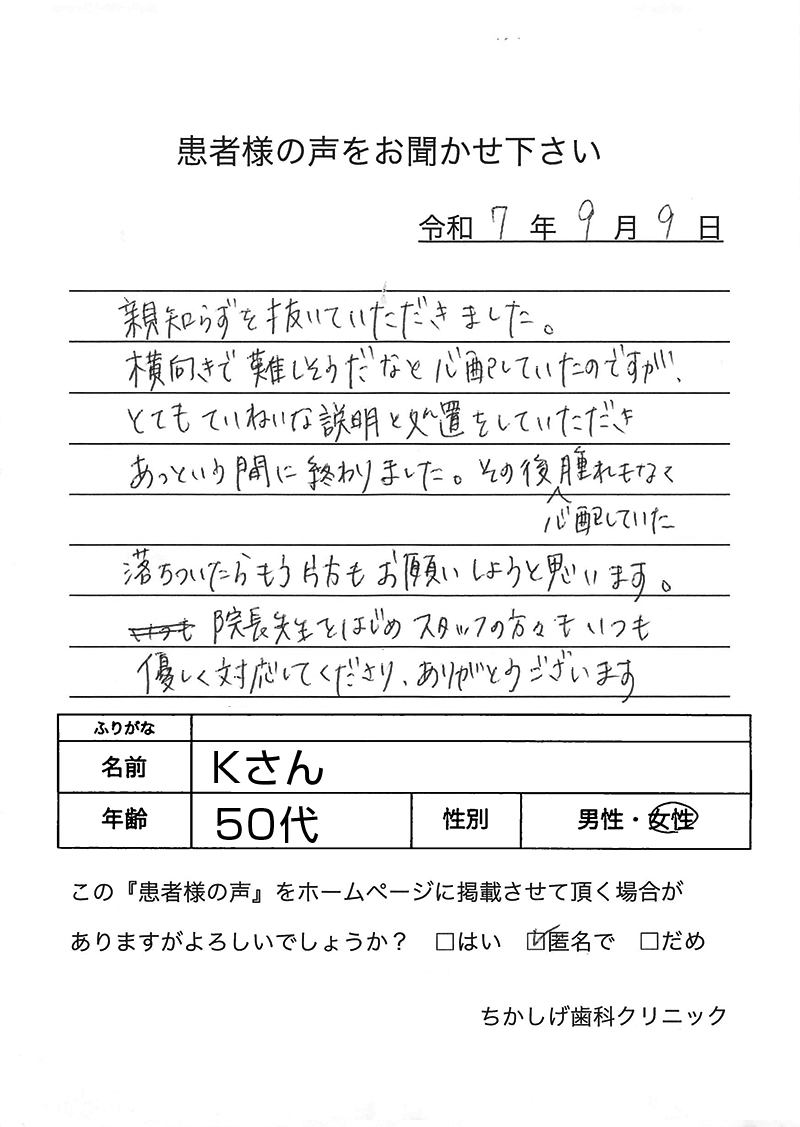 患者様の声をお聞かせ下さい
令和 7 年 9 月 9 日
親知らずを抜いていただきました。
横向きで難しそうだなと心配していたのですが、
とてもていねいな説明と処置をしていただき
あっという間に終わりました。その後腫れもなく
心配していた
落ちついたらもう片方もお願いしようと思います。
院長先生をはじめスタッフの方々もいつも
優しく対応してくださり、ありがとうございます
ふりがな
名前 Kさん
年齢 50代 性別 男性・女性
この『患者様の声』をホームページに掲載させて頂く場合が
ありますがよろしいでしょうか？ □はい ☑匿名で □だめ
ちかしげ歯科クリニック